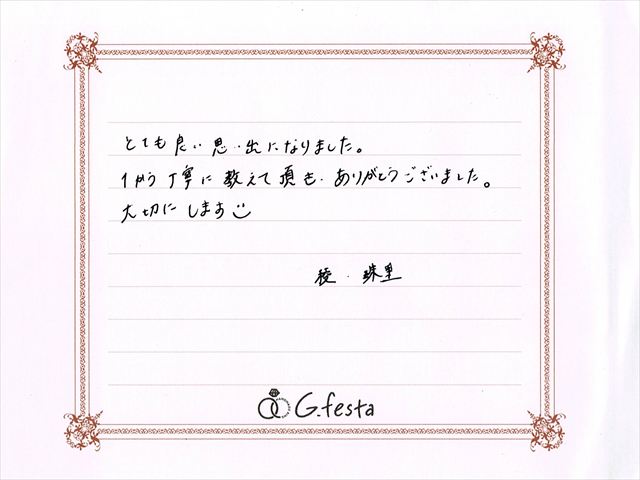 とても良い思い出になりました。
1から丁寧に教えて頂き、ありがとうございました。
大切にします
稜・珠里
G.festa